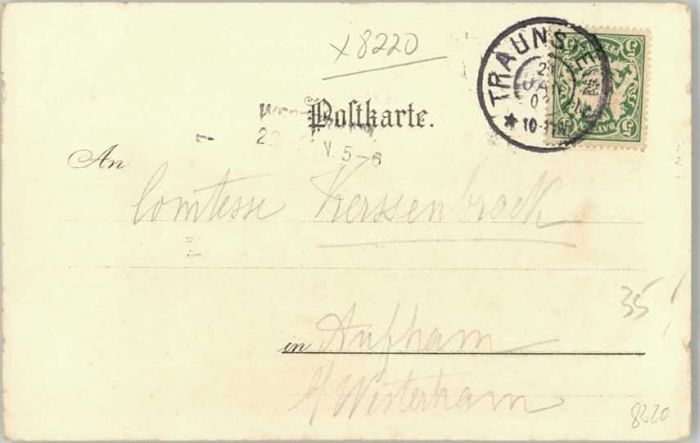 x8220
TRAUNSTEIN
2
JAN
* 10-11
5
Postkarte.
22 N. 5-6
An
Comtesse Kerssenbrock
35
in Aufham
b/ Westerham
8220